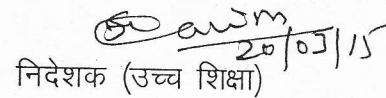 20/03/15
निदेशक (उच्च शिक्षा)